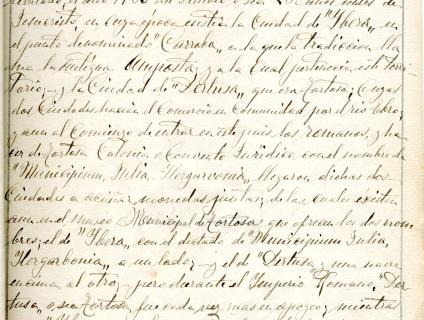 Jesucristo, en cuya epoca existia la Ciudad de "Ybera" en
el punto denominado "Carroba" a la que la tradicion lla-
ma la antigua Amposta; y a la cual pertenecia este Terri-
torio; y la Ciudad de "Dertusa" que era Tortosa; Cuyas
dos Ciudades hacian el Comercio en Comunidad por el rio Ebro;
y aun al Comienzo de entrar en este pais los romanos, y ha-
cer de Tortosa Colonia o Convento Juridico, con el nombre de
"Municipium, Julia, Hergarvonia" llegaron dichas dos
Ciudades a acuñar monedas juntas; de las cuales existen
aun en el museo Municipal de Tortosa que ofrecen los dos nom-
bres; el de "Ybera" con el dictado de "Municipium Julia,
Hergarbonia" a un lado; y el de "Dertusa" y una nave
encima, al otro; pero durante el Imperio "Romano" "Der-
tusa" o sea Tortosa, fue cada vez mas en apogeo; mientras